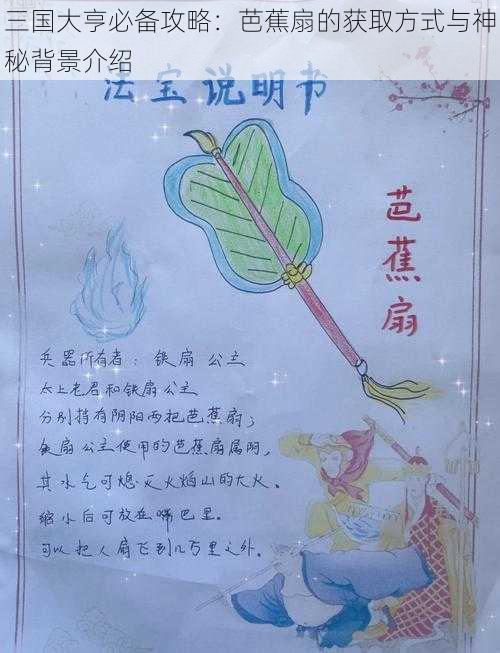 三国大亨必备攻略：芭蕉扇的获取方式与神
秘背景介绍
法宝说明书
芭蕉扇
兵器所有者：铁扇公主
太上老君和铁扇公主
分别持有阴阳两把芭蕉扇；
铁扇公主使用的芭蕉扇属阴，
其水气可熄灭火焰山的大火。
缩小后可放在嘴巴里。
可以把人扇飞到几万里之外。